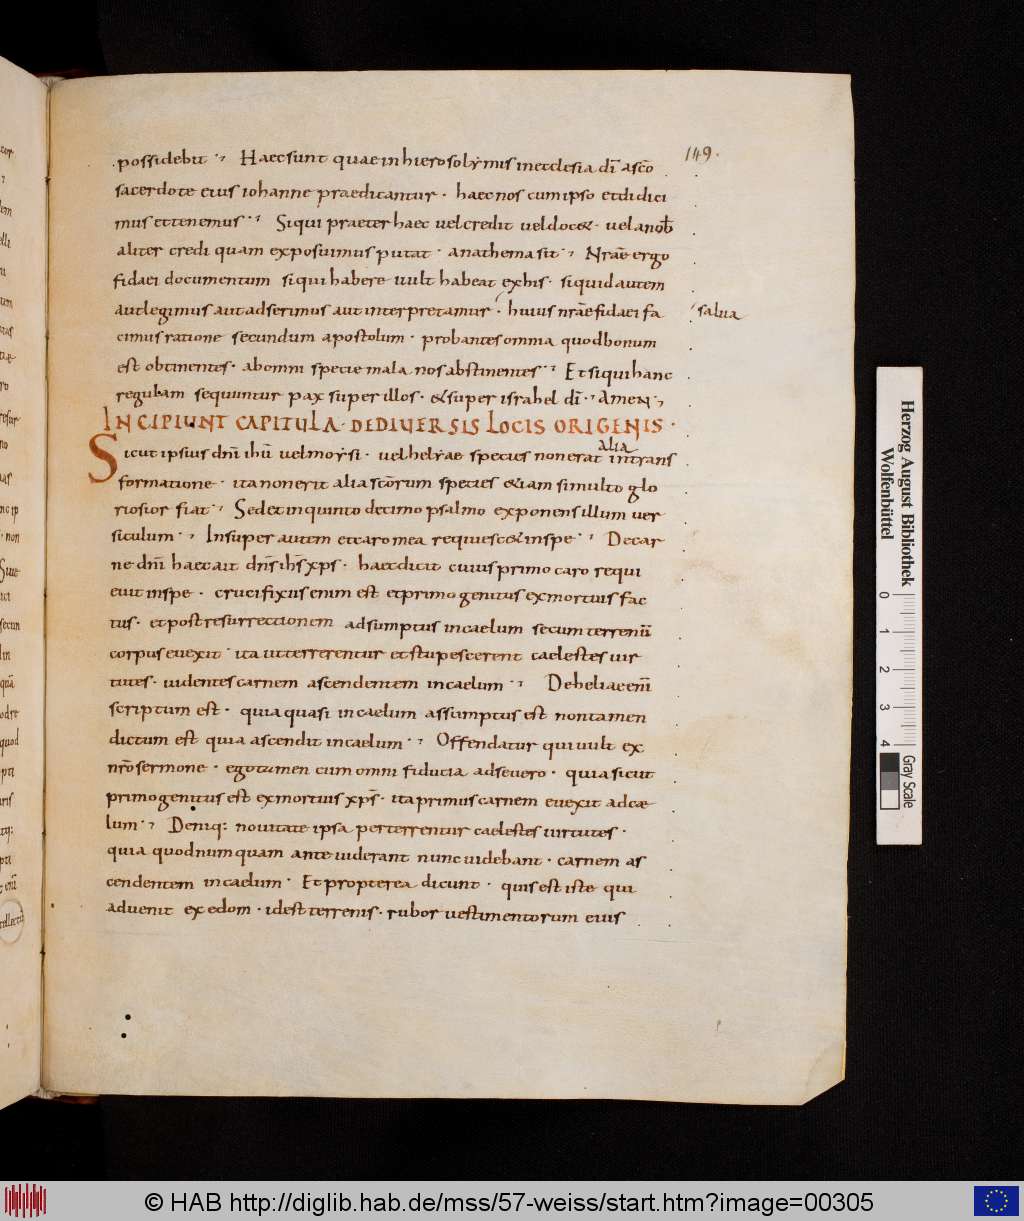 149.
possidebit Haec sunt quae in hierosolymis in ecclesia dī a scō
sacerdote eius iohanne praedicantur · haec nos cum ipso et didici
mus et tenemus Siqui praeter haec vel credit vel docet · vel anob
aliter credi quam exposuimus putat · anathema sit Nrāe ergo
fidaei documentum siqui habere uult habeat ex his · siquid autem
aut legimus aut adserimus aut interpretamur · huius nrāe fidaei fa
salua
cimus ratione secundum apostolum · probantes omnia quod bonum
est obtinentes · ab omni specie mala nos abstinentes Et siqui hanc
regulam sequuntur pax super illos · & super israhel dī · Amen
INCIPIUNT CAPITULA · DE DIVERSIS LOCIS ORIGENIS ·
alia
Sicut ipsius dnī ihū uel moysi · uel helyae species non erat in trans
formatione · ita non erit alia scōrum species & iam si multo glo
riosior fiat Sed et in quinto decimo psalmo exponens illum uer
siculum Insuper autem et caro mea requiesc& in spe De car
ne dnī haec ait dnſ ihſ xpſ · haec dicit cuius primo caro requi
euit in spe · crucifixus enim est et primogenitus ex mortuis fac
tus · et post resurrectionem adsumptus in caelum secum terrenū
corpus euexit · ita ut terrerentur et stupescerent caelestes uir
tutes · uidentes carnem ascendentem in caelum De helia enī
scriptum est · quia quasi in caelum assumptus est non tamen
dictum est quia ascendit in caelum · Offendatur qui uult ex
nrō sermone · ego tamen cum omni fiducia adsevero · quia sicut
primogenitus est ex mortuis xpſ · ita primus carnem euexit ad cæ
lum · Deniq: nouitate ipsa perterrentur caelestes uirtutes ·
quia quod numquam ante uiderant nunc uidebant · carnem as
cendentem in caelum · Et propterea dicunt · quis est iste qui
aduenit ex edom · id est terrenis · rubor uestimentorum eius
Herzog August Bibliothek
Wolfenbüttel
0 1 2 3 4
Gray Scale
© HAB http://diglib.hab.de/mss/57-weiss/start.htm?image=00305